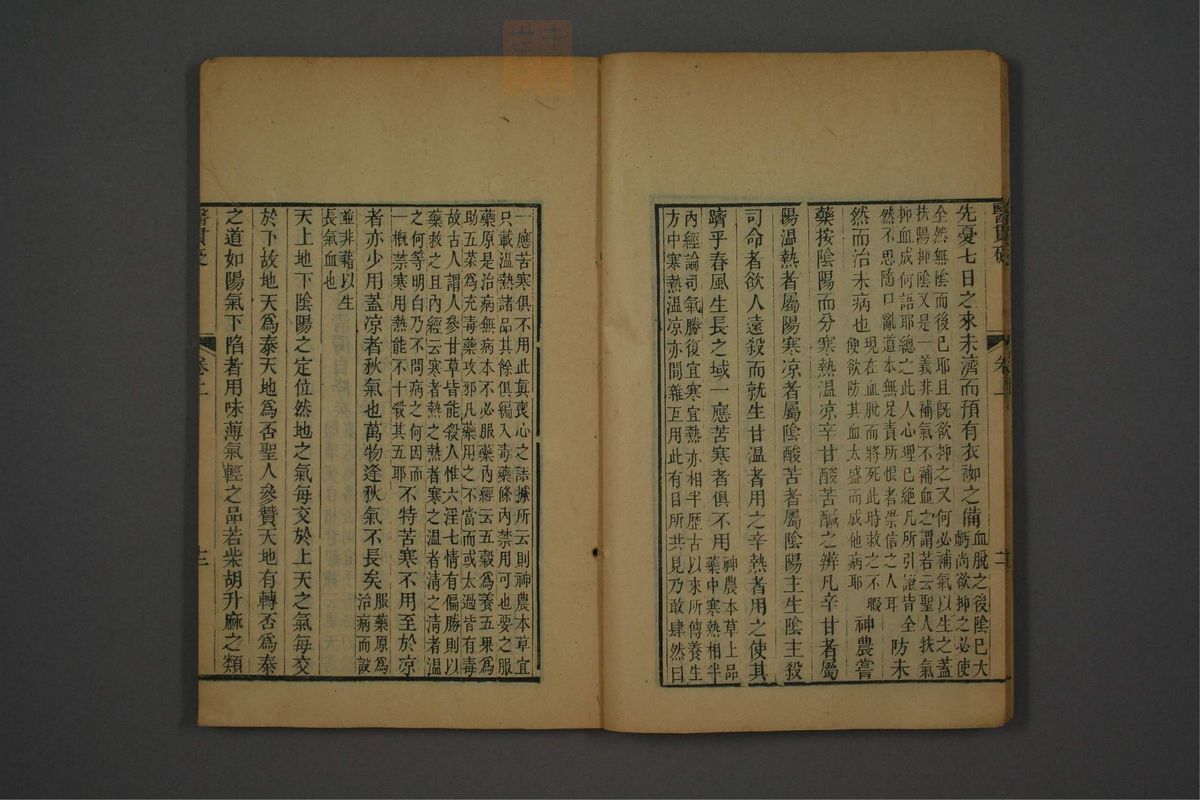 醫貫砭
卷上
二
先憂七日之來未濟而預有衣袽之備血脫之後陰已大
虧尚欲抑之必使
全然無陰而後已耶且旣欲抑之又何必補氣以生之蓋
扶陽抑陰又是一義非補氣不補血之謂若云聖人扶氣
抑血成何語耶總之此人心理已絕凡所引證皆全
然不思隨口亂道本無足責所恨者崇信之人耳
防未
然而治未病也
現在血脫而將死此時救之不暇
便欲防其血太盛而成他病耶
神農嘗
藥按陰陽而分寒熱溫凉辛甘酸苦鹹之辨凡辛甘者屬
陽溫熱者屬陽寒凉者屬陰酸苦者屬陰陽主生陰主殺
司命者欲人遠殺而就生甘溫者用之辛熱者用之使其
躋乎春風生長之域一應苦寒者俱不用
神農本草上品
藥中寒熱相半
內經論司氣勝復宜寒宜熱亦相半歷古以來所傳養生
方中寒熱溫凉亦間雜互用此有目所共見乃敢肆然曰
一應苦寒俱不用此眞喪心之語據所云則神農本草宜
只載溫熱諸品其餘俱編入毒藥條內禁用可也要之服
藥原是治病無病本不必服藥內經云五穀爲養五果爲
助五菜爲充毒藥攻邪凡藥用之不當而或太過皆有毒
故古人謂人參甘草皆能殺人惟六淫七情有偏勝則以
藥救之且內經云寒者熱之熱者寒之溫者淸之淸者溫
之何等明白乃不問病之何因而
一概禁寒用熱能不十殺其五耶
不特苦寒不用至於凉
者亦少用蓋凉者秋氣也萬物逢秋氣不長矣
服藥原爲
治病而設
並非藉以生
長氣血也
天上地下陰陽之定位然地之氣每交於上天之氣每交
於下故地天爲泰天地爲否聖人參贊天地有轉否爲泰
之道如陽氣下陷者用味薄氣輕之品若柴胡升麻之類
醫貫砭
卷上
三